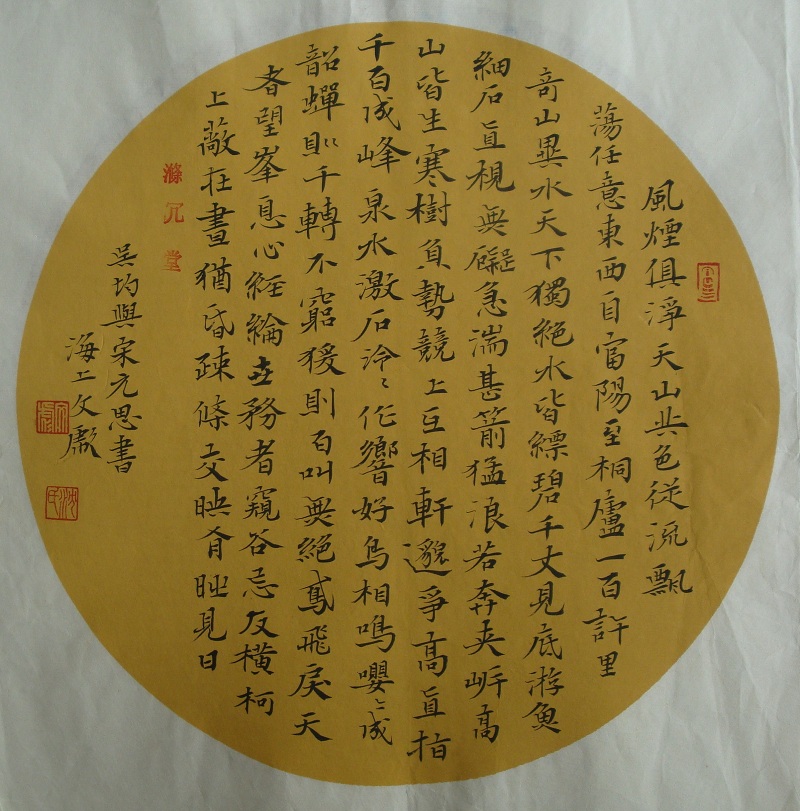 風煙俱淨天山共色從流飄
蕩任意東西自富陽至桐廬一百許里
奇山異水天下獨絕水皆縹碧千丈見底游魚
細石直視無礙急湍甚箭猛浪若奔夾岸高
山皆生寒樹負勢競上互相軒邈爭高直指
千百成峰泉水激石泠〻作響好鳥相鳴嚶〻成
韻蟬則千轉不窮猨則百叫無絕鳶飛戾天
者望峯息心經綸世務者窺谷忘反橫柯
上蔽在晝猶昏疎條交映有時見日
吳均與宋元思書
海上文